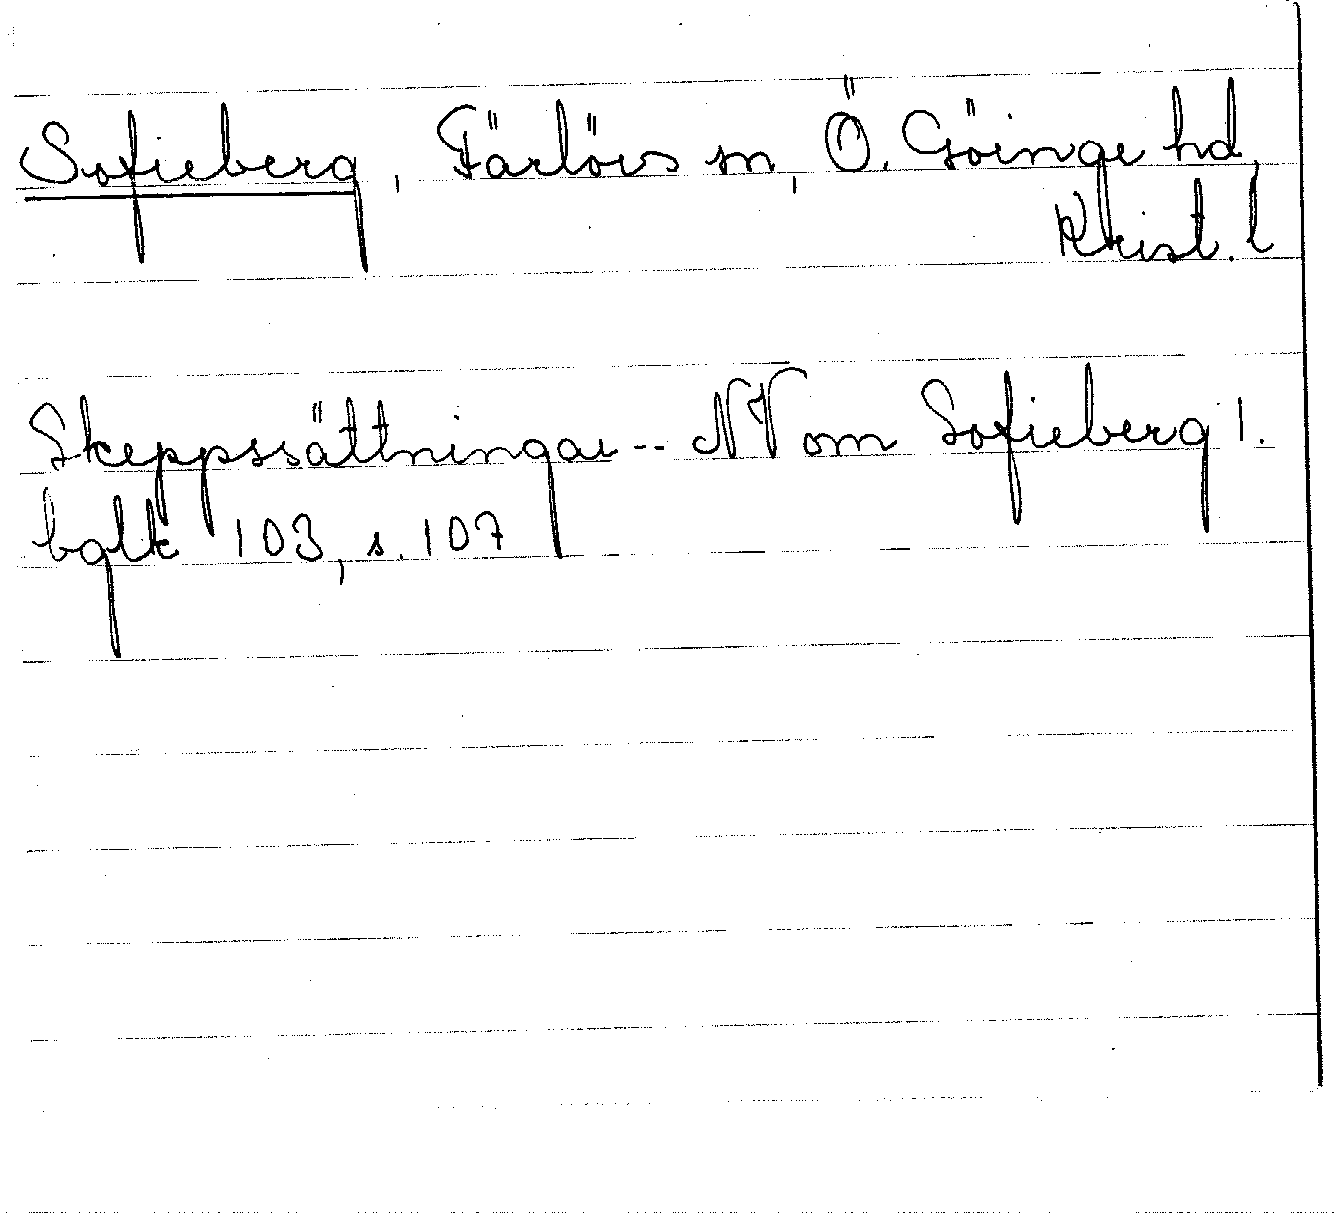 Sofieberg, Färlövs sn, Ö. Göinge hd,
Krist. l
Skeppssättningar -- NV om Sofieberg 1.
bglk 103, s. 107